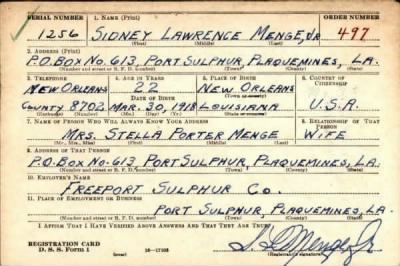 SERIAL NUMBER 1. NAME (Print) ORDER NUMBER
1256 SIDNEY LAWRENCE MENGE, JR 497
(First) (Middle) (Last)
2. ADDRESS (Print)
P.O. BOX NO. 613, PORT SULPHUR, PLAQUEMINES, LA.
(Number and street or R. F. D. number) (Town) (County) (State)
3. TELEPHONE 4. AGE IN YEARS 5. PLACE OF BIRTH 6. COUNTRY OF CITIZENSHIP
NEW ORLEANS 22 NEW ORLEANS
DATE OF BIRTH
COUNTY 8702 MAR. 30, 1918 LOUISIANA U.S.A.
(Exchange) (Number) (Mo.) (Day) (Yr.) (State or country)
7. NAME OF PERSON WHO WILL ALWAYS KNOW YOUR ADDRESS 8. RELATIONSHIP OF THAT PERSON
MRS. STELLA PORTER MENGE WIFE
(Mr., Mrs., Miss) (First) (Middle) (Last)
9. ADDRESS OF THAT PERSON
P.O. BOX NO. 613 PORT SULPHUR, PLAQUEMINES, LA.
(Number and street or R. F. D. number) (Town) (County) (State)
10. EMPLOYER'S NAME
FREEPORT SULPHUR CO.
11. PLACE OF EMPLOYMENT OR BUSINESS
PORT SULPHUR, PLAQUEMINES, LA.
(Number and street or R. F. D. number) (Town) (County) (State)
I AFFIRM THAT I HAVE VERIFIED ABOVE ANSWERS AND THAT THEY ARE TRUE.
REGISTRATION CARD
D. S. S. Form 1 (over) 16-17105 S. L. Menge Jr.
(Registrant's signature)